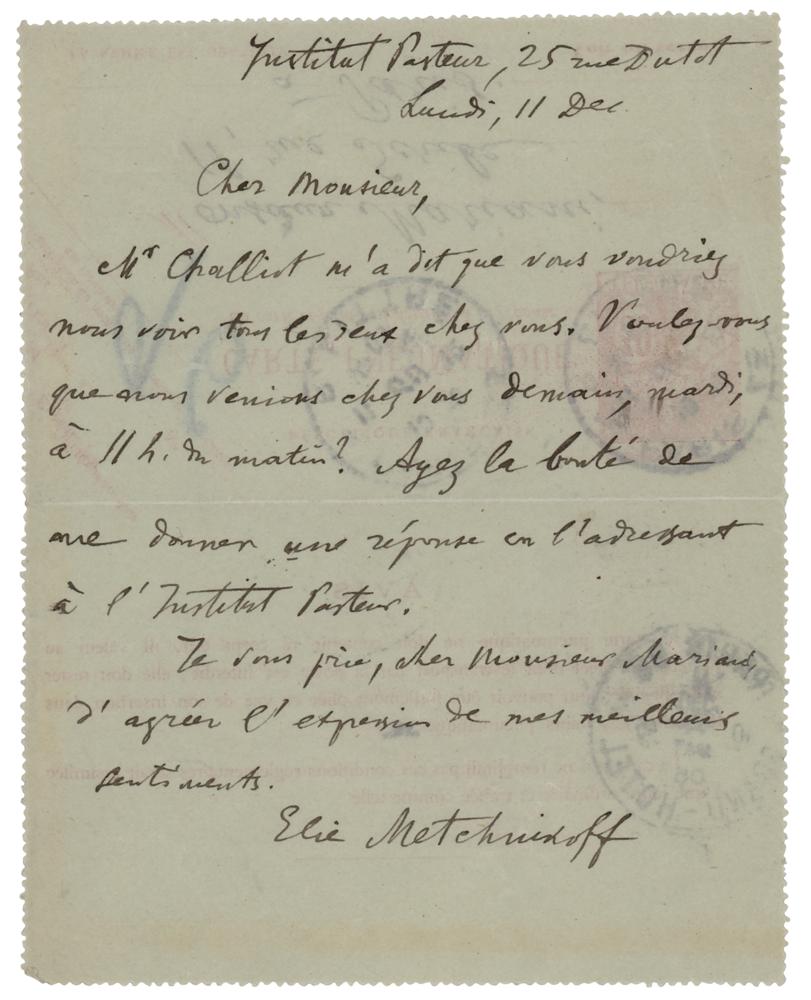 Institut Pasteur, 25 rue Dutot
Lundi, 11 Dec
Cher Monsieur,
Mr Challiot m'a dit que vous voudriez
nous voir tous les deux chez vous. Voulez-vous
que nous venions chez vous demain, mardi,
à 11 h. du matin? Ayez la bonté de
me donner une réponse en l'adressant
à l'Institut Pasteur.
Je vous prie, cher Monsieur Mariani,
d'agréer l'expression de mes meilleurs
sentiments.
Elie Metchnikoff